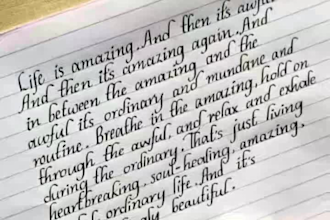 Life is amazing. And then it's awful.
And then it's amazing again. And
in between the amazing and the
awful it's ordinary and mundane and
routine. Breathe in the amazing, hold on
through the awful, and relax and exhale
during the ordinary. That's just living
heartbreaking, soul-healing, amazing,
ordinary life. And it's
beautiful.